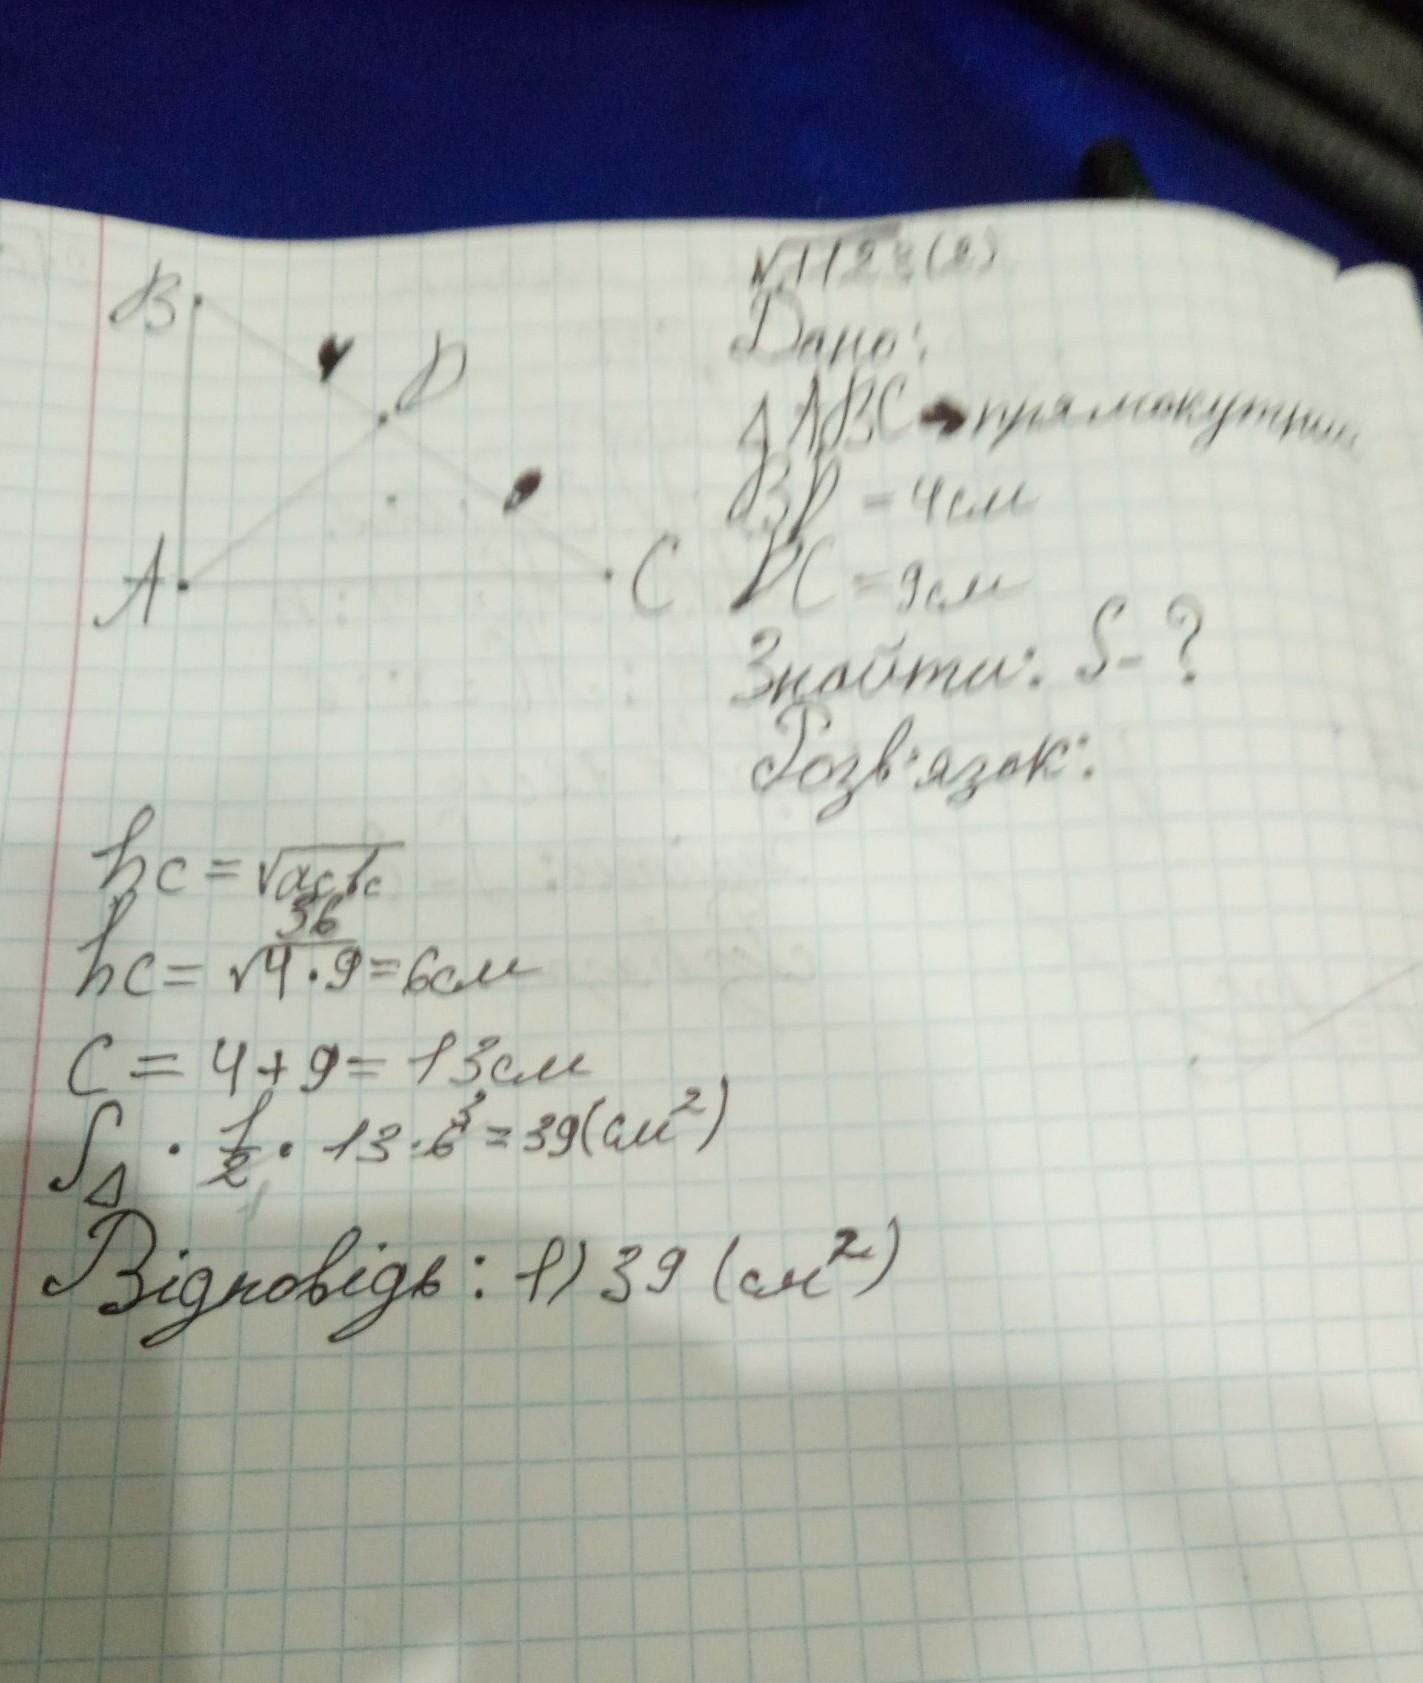 B
D
A
C
√1123(2)
Дано:
△ABC → прямокутний
BD = 4см
DC = 9см
Знайти: S - ?
Розв'язок:
hc = √ac bc
36
hc = √4 · 9 = 6см
C = 4 + 9 = 13см
3
S△ · 1/2 · 13 · 6 = 39(см²)
1
Відповідь: 1) 39 (см²)